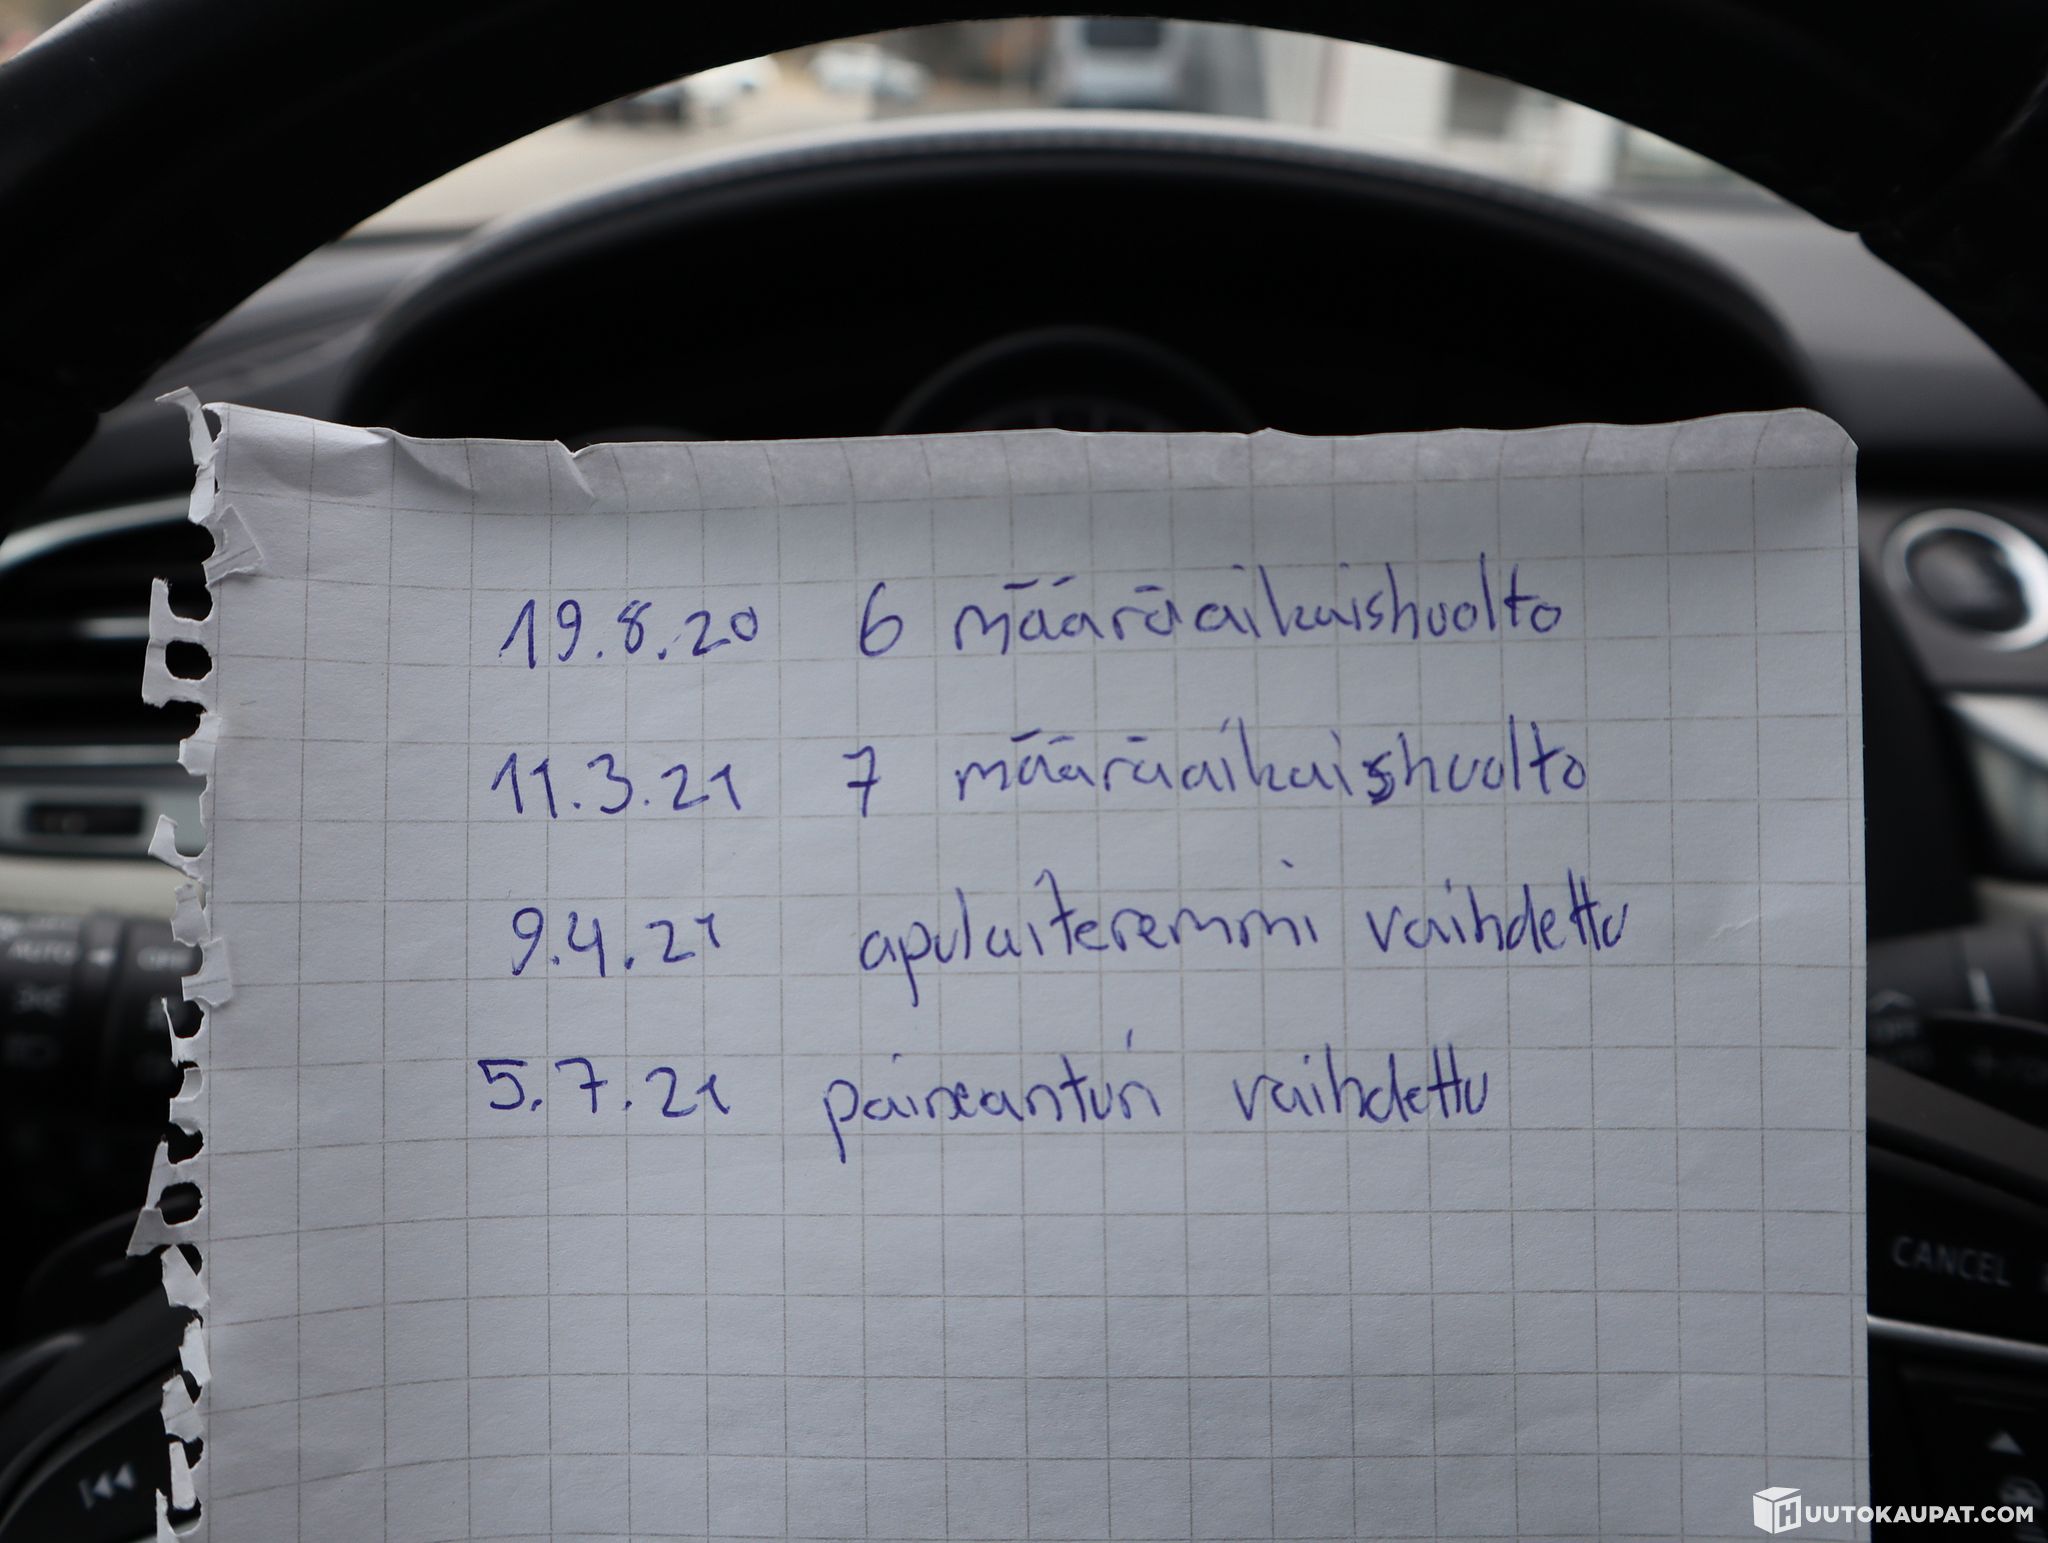 19.8.20 6 määräaikaishuolto
11.3.21 7 määräaikaishuolto
9.4.21 apulaiteremmi vaihdettu
5.7.21 paineanturi vaihdettu
AUTO
OFF
CANCEL
HUUTOKAUPAT.COM